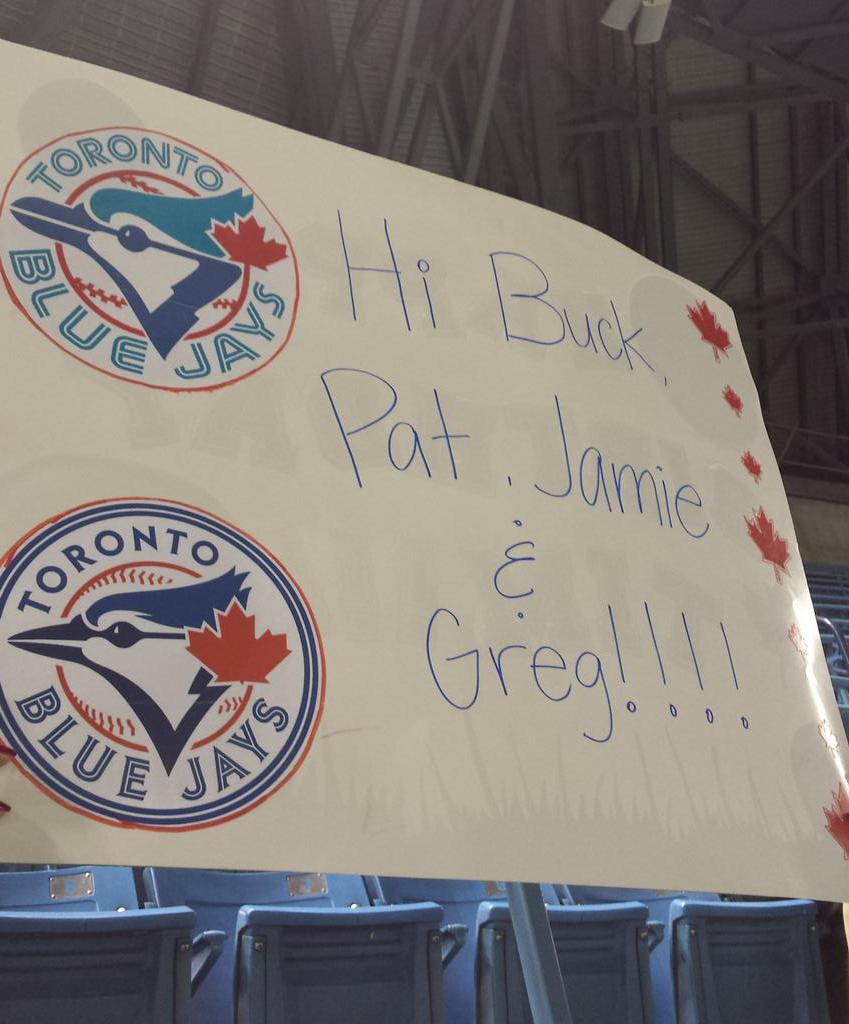 TORONTO
BLUE JAYS
Hi Buck,
Pat, Jamie
&
Greg!!!!
TORONTO
BLUE JAYS